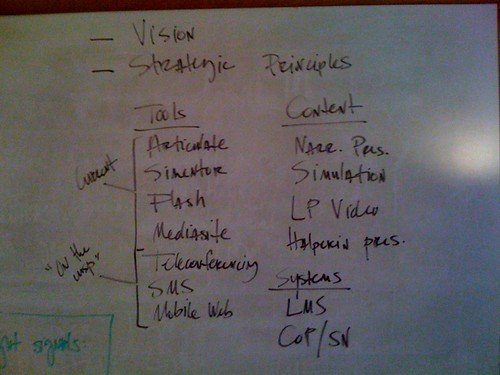 — Vision
— Strategic Principles
Tools
Articulate
Simentor
Flash
Mediasite
Teleconferencing
SMS
Mobile Web
Current
"On the cusp"
Content
Narr. Pres.
Simulation
LP Video
Halperin pres.
Systems
LMS
CoP/SN
signals: